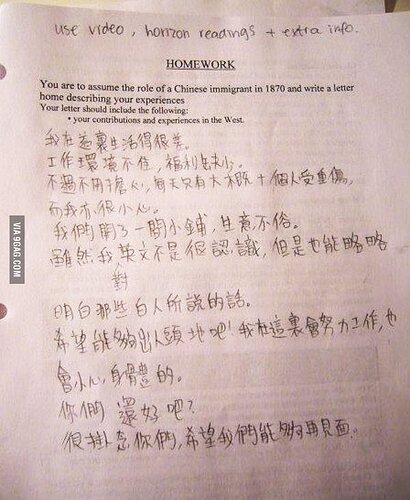 use video, horizon readings + extra info.
HOMEWORK
You are to assume the role of a Chinese immigrant in 1870 and write a letter
home describing your experiences
Your letter should include the following:
• your contributions and experiences in the West.
我在這裏生活得很差。
工作環境不佳,福利缺小。
不過不用擔心,每天只有大概十個人受重傷,
而我亦很小心。
我們開了一間小鋪,生意不俗。
雖然我英文不是很認識,但是也能略略
對
明白那些白人所說的話。
希望能夠出人頭地吧!我在這裏會努力工作,也
會小心身體的。
你們還好吧?
很掛念你們,希望我們能夠再見面。
VIA 9GAG.COM